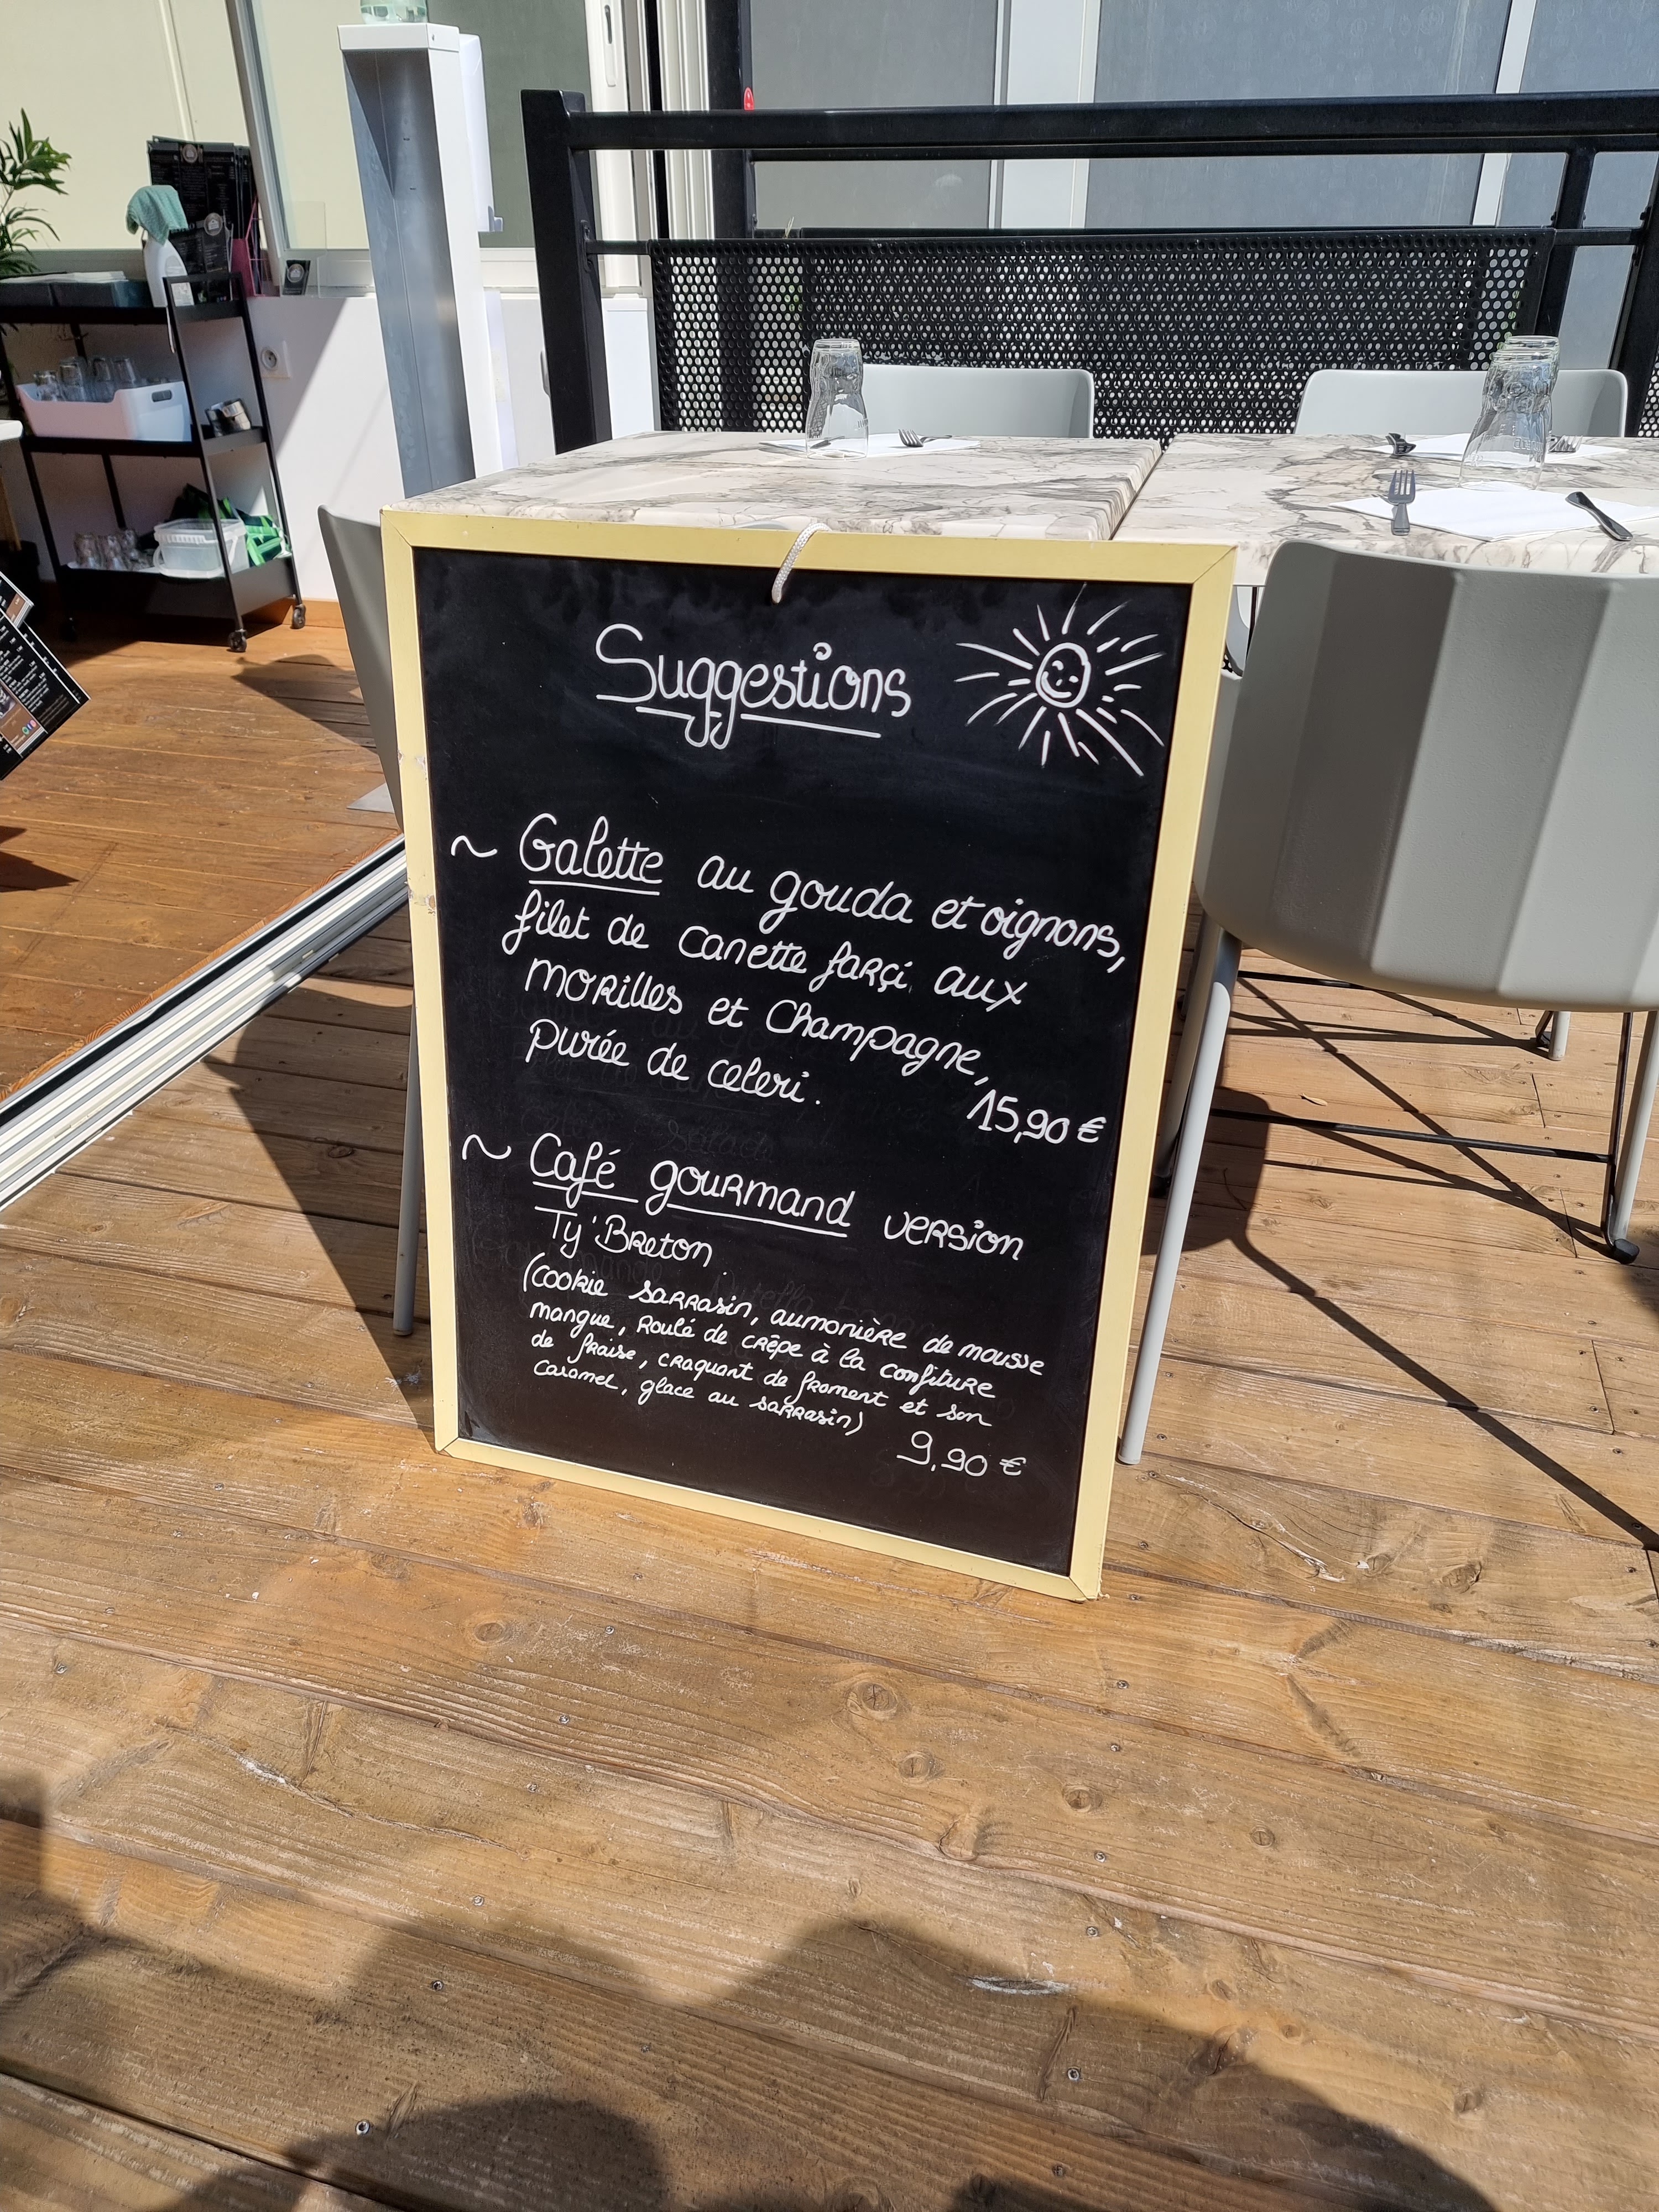 Suggestions
~ Galette au gouda et oignons,
filet de canette farçi aux
morilles et Champagne,
purée de celeri.
15,90 €
~ Café gourmand version
Ty'Breton
(cookie sarrasin, aumonière de mousse
mangue, roulé de crêpe à la confiture
de fraise, craquant de froment et son
caramel, glace au sarrasin)
9,90 €